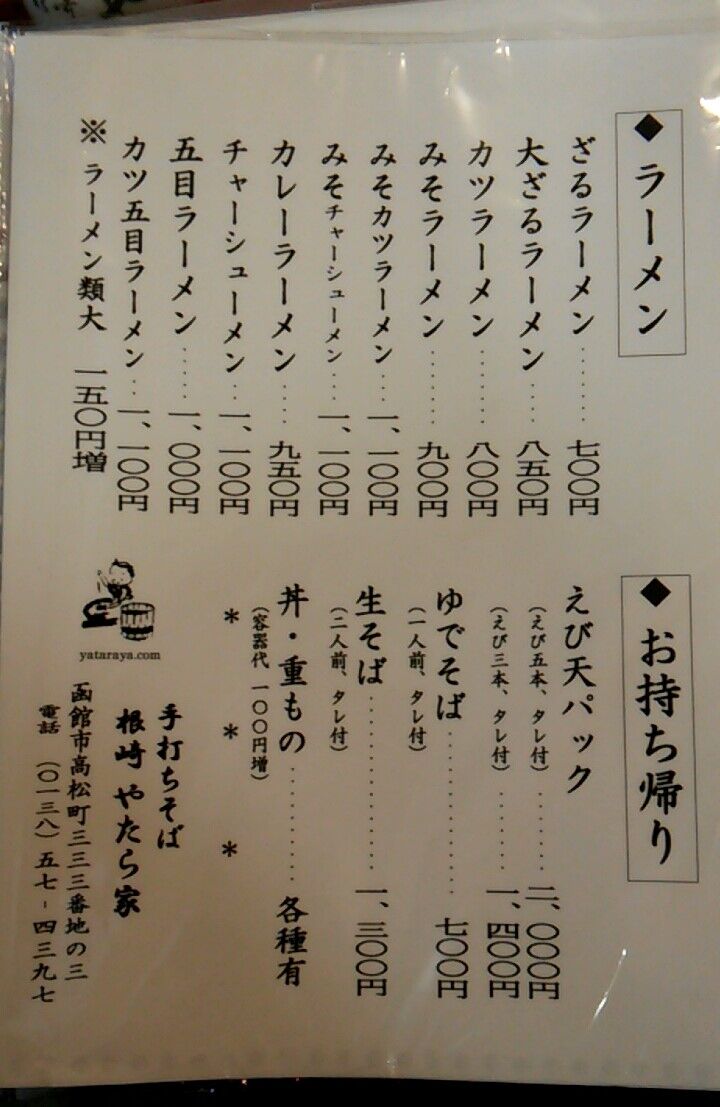 ◆ ラーメン
ざるラーメン………七〇〇円
大ざるラーメン…八五〇円
カツラーメン………八〇〇円
みそラーメン………九〇〇円
みそカツラーメン…一、一〇〇円
みそチャーシューメン…一、一〇〇円
カレーラーメン……九五〇円
チャーシューメン…一、一〇〇円
五目ラーメン……一、〇〇〇円
カツ五目ラーメン…一、一〇〇円
※ ラーメン類大 一五〇円増
◆ お持ち帰り
えび天パック
(えび五本、タレ付)………二、〇〇〇円
(えび三本、タレ付)………一、四〇〇円
ゆでそば………………七〇〇円
(一人前、タレ付)
生そば………………一、三〇〇円
(二人前、タレ付)
丼・重もの…………各種有
(容器代 一〇〇円増)
* * *
yataraya.com
手打ちそば
根崎 やたら家
函館市高松町三三三番地の三
電話 (〇一三八)五七-四三九七